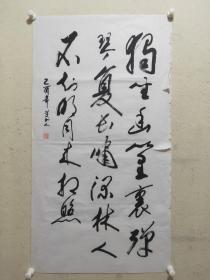 独坐幽篁里弹
琴复长啸深林人
不知明月来相照
乙酉年